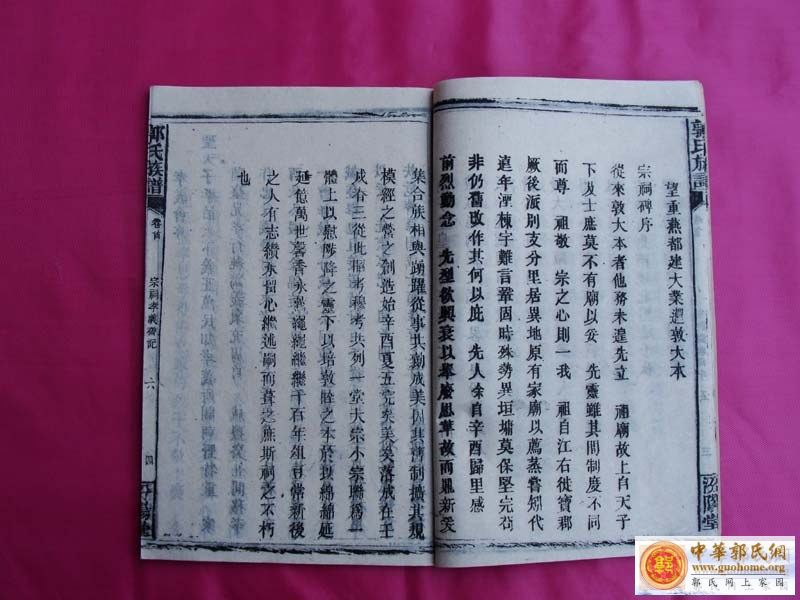 望重燕都建大業遡敦大本
宗祠碑序
從來敦大本者他務未遑先立 祖廟故上自天子
下及士庶莫不有廟以妥 先靈雖其間制度不同
而尊 祖敬 宗之心則一我 祖自江右徙寶郡
厥後派别支分里居異地原有家廟以薦蒸嘗矧代
遠年湮棟宇難言鞏固時殊勢異垣墉莫保堅完苟
非仍舊改作其何以庇 先人余自辛酉歸里感
前烈動念 先型欲興衰以舉廢思革故而鼎新爰
集合族相與踴躍從事共勷成美因其舊制擴其規
模經之營之創造始辛酉夏五完矣美矣落成在壬
戌春三從此昭考穆考共列一堂大宗小宗聯為一
體上以慰陟降之靈下以培敦睦之本於以綿綿延
延億萬世馨香永薦繩繩繼繼千百年俎豆常新後
之人有志纘承留心繼述嗣而葺之庶斯祠之不朽
也
郭氏族譜
卷首
宗祠孝義齋記
六
四
汾陽堂
郭氏族譜
三
汾陽堂
中華郭氏網
www.guohome.org
郭氏网上家园